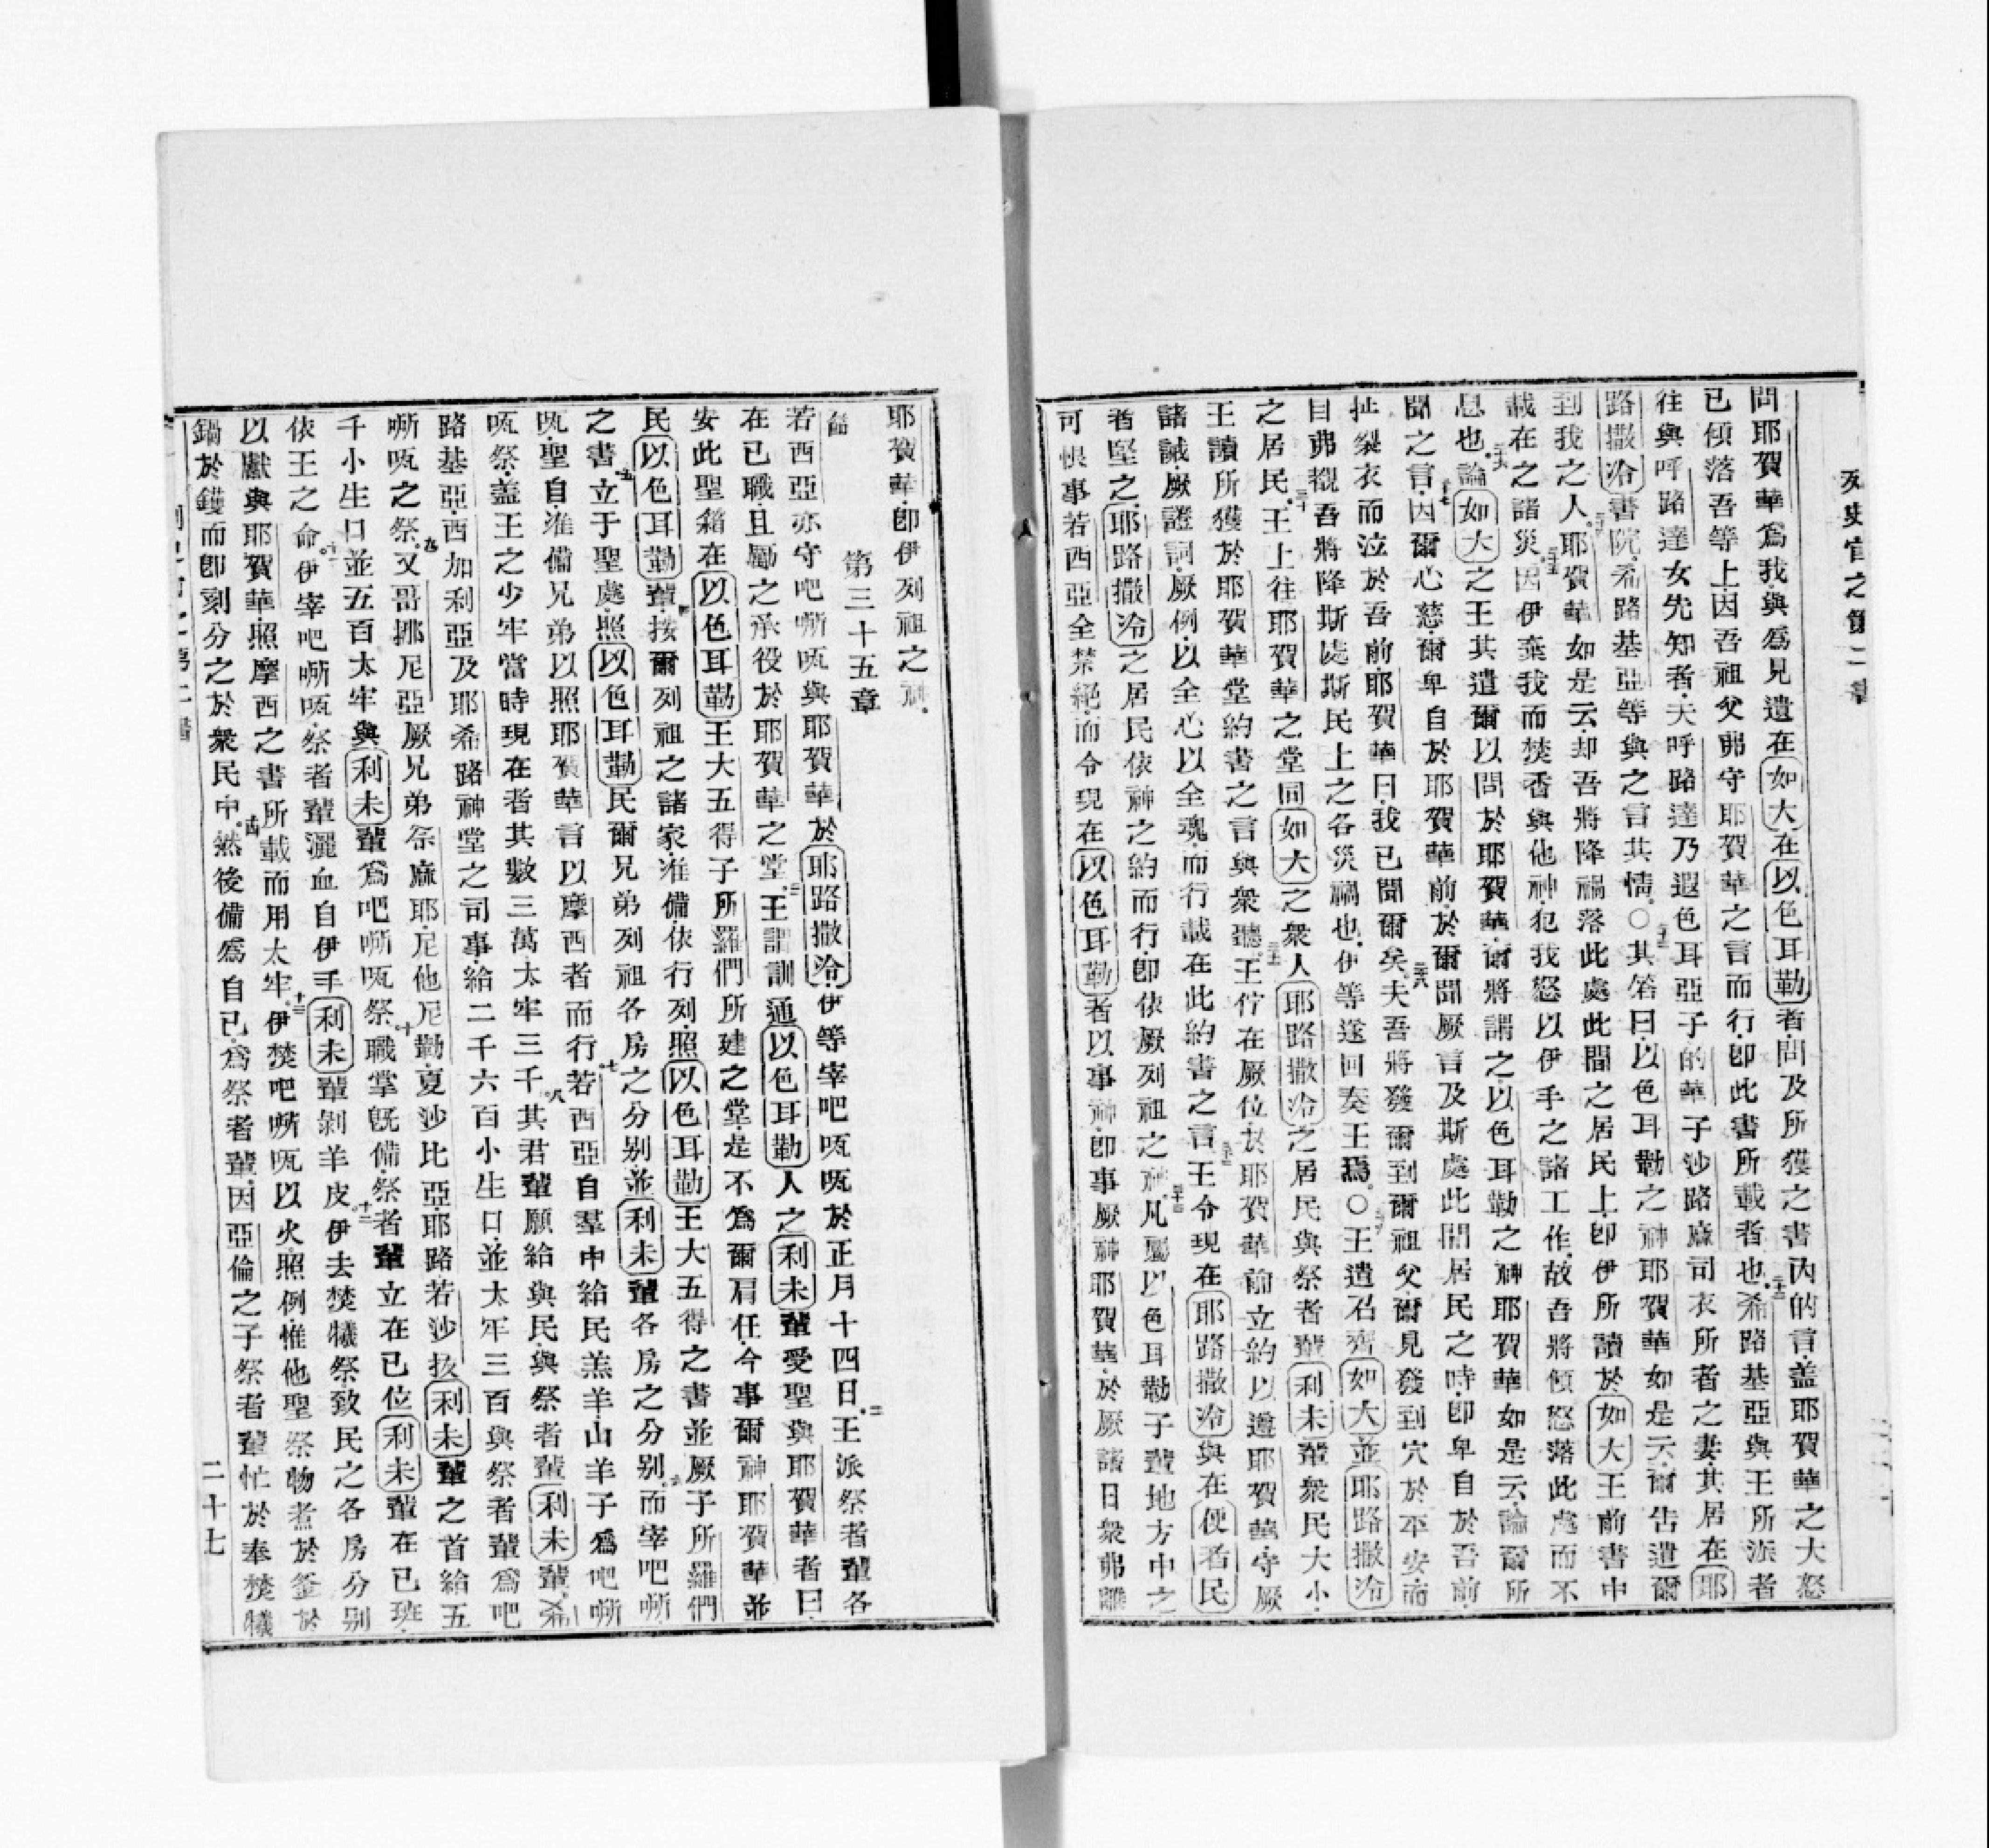 問耶賀華爲我與爲見遺在如大在以色耳勒者問及所獲之書內的言蓋耶賀華之大怒
已傾落吾等上因吾祖父弗守耶賀華之言而行卽此書所載者也希路基亞與王所派者
往與呼路達女先知者夫呼路達乃遐色耳亞子的華子沙路麻司衣所者之妻其居在耶
路撒冷書院希路基亞等與之言其情○其答曰以色耳勒之神耶賀華如是云爾告遣爾
到我之人耶賀華如是云却吾將降禍落此處此間之居民上卽伊所讀於如大王前書中
載在之諸災因伊棄我而焚香與他神犯我怒以伊手之諸工作故吾將傾怒落此處而不
息也論如大之王其遣爾以問於耶賀華爾將謂之以色耳勒之神耶賀華如是云論爾所
聞之言因爾心慈爾卑自於耶賀華前於爾聞厥言及斯處此間居民之時卽卑自於吾前
扯裂衣而泣於吾前耶賀華曰我已聞爾矣夫吾將發爾到爾祖父爾見發到穴於平安而
目弗覩吾將降斯處斯民上之各災禍也伊等遂回奏王焉○王遣召齊如大並耶路撒冷
之居民王上往耶賀華之堂同如大之衆人耶路撒冷之居民與祭者輩利未輩衆民大小
王讀所獲於耶賀華堂約書之言與衆聽王佇在厥位於耶賀華前立約以遵耶賀華守厥
諸誡厥證詞厥例以全心以全魂而行載在此約書之言王令現在耶路撒冷與在便者民
者堅之耶路撒冷之居民依神之約而行卽依厥列祖之神凡屬以色耳勒子輩地方中之
可恨事若西亞全禁絕而令現在以色耳勒者以事神卽事厥神耶賀華於厥諸日衆弗離
耶賀華卽伊列祖之神
第三十五章
若西亞亦守吧嘶㕸與耶賀華於耶路撒冷伊等宰吧㕸㕸於正月十四日王派祭者輩各
在已職且勵之承役於耶賀華之堂王謂訓通以色耳勒人之利未輩受聖與耶賀華者曰
安此聖箱在以色耳勒王大五得子所羅們所建之堂是不爲爾肩任今事爾神耶賀華並
民以色耳勒輩按爾列祖之諸家准備依行列照以色耳勒王大五得之書並厥子所羅們
之書立于聖處照以色耳勒民爾兄弟列祖各房之分别並利未輩各房之分别而宰吧嘶
㕸聖自准備兄弟以照耶賀華言以摩西者而行若西亞自羣中給民羔羊山羊子爲吧嘶
㕸祭蓋王之少牢當時現在者其數三萬太牢三千其君輩願給與民與祭者輩利未輩希
路基亞西加利亞及耶希路神堂之司事給二千六百小生口並太牢三百與祭者輩爲吧
嘶㕸之祭又哥挪尼亞厥兄弟祭麻耶尼他尼勒夏沙比亞耶路若沙抜利未輩之首給五
千小生口並五百太牢與利未輩爲吧嘶㕸祭職掌旣備祭者輩立在已位利未輩在已班
依王之命伊宰吧嘶㕸祭者輩灑血自伊手利未輩剝羊皮伊去焚犧祭致民之各房分别
以獻與耶賀華照摩西之書所載而用太牢伊焚吧嘶㕸以火照例惟他聖祭物煮於釜於
鍋於鑊而卽刻分之於衆民中然後備爲自已爲祭者輩因亞倫之子祭者輩忙於奉焚犧
二十七